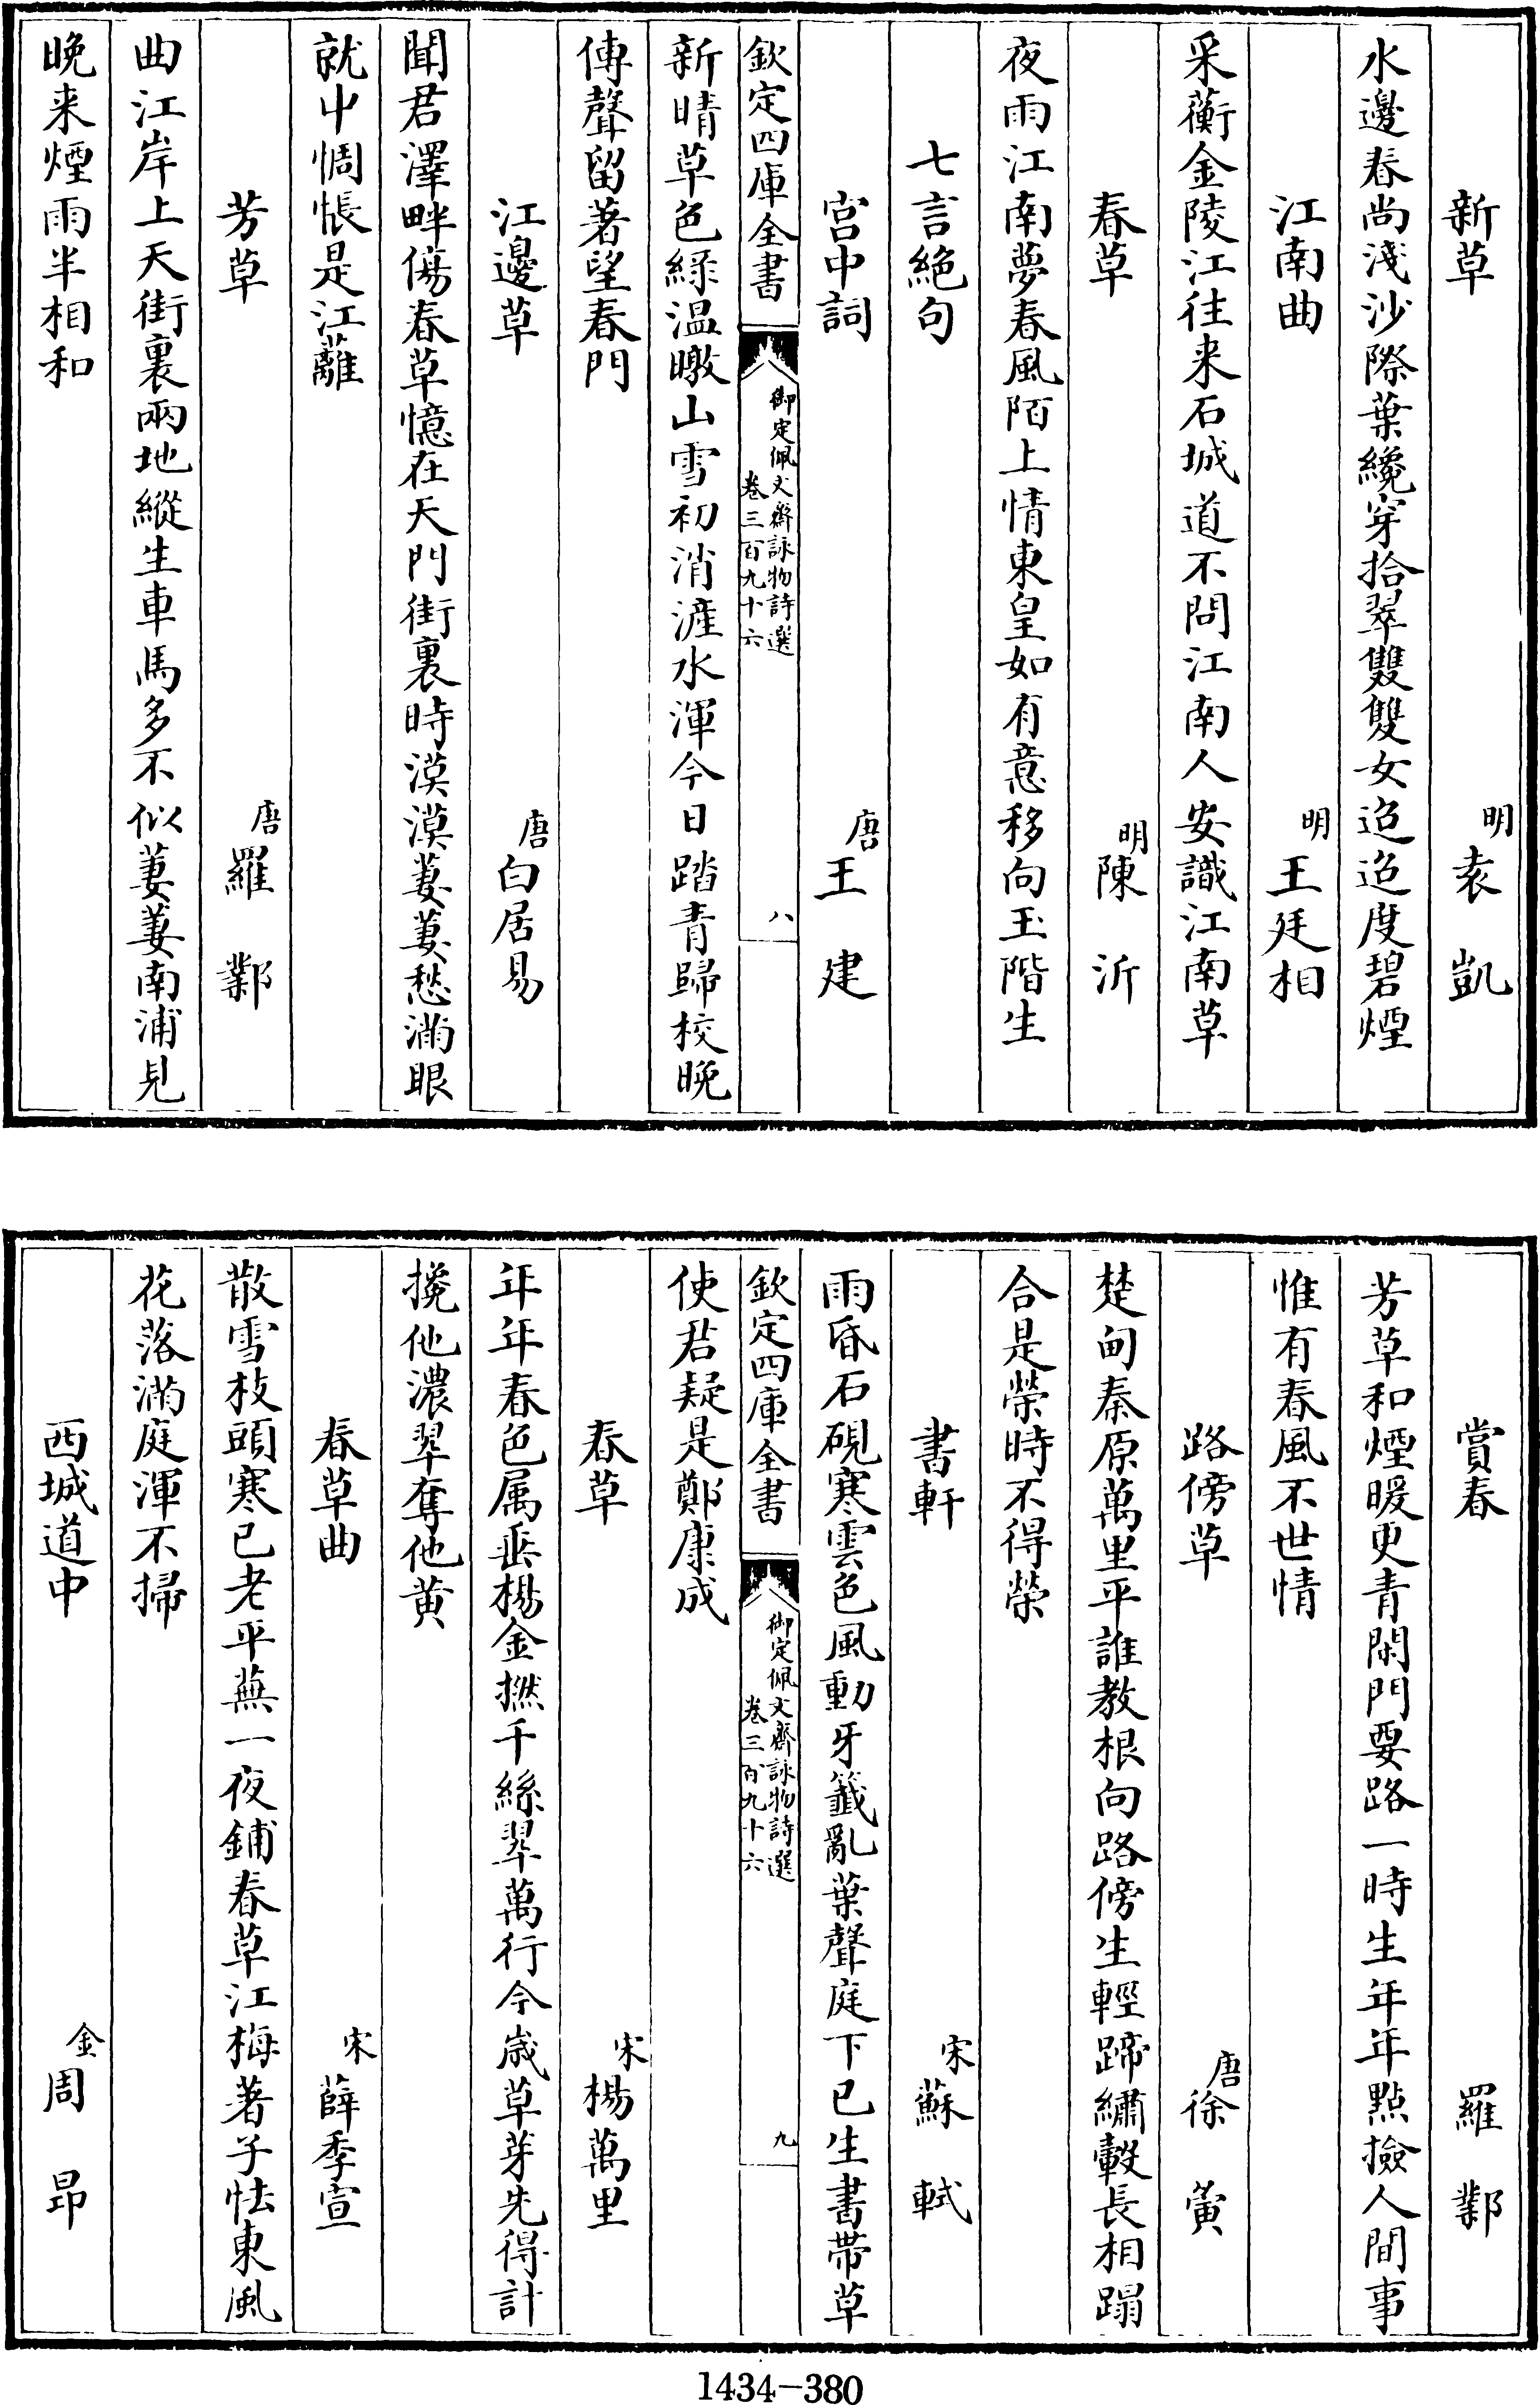 新草 明袁凱
水邊春尚淺沙際葉纔穿拾翠雙雙女迢迢度碧煙
江南曲 明王廷相
采蘅金陵江往来石城道不問江南人安識江南草
春草 明陳沂
夜雨江南夢春風陌上情東皇如有意移向玉階生
七言絶句
宫中詞 唐王建
欽定四庫全書 御定佩文齋詠物詩選 卷三百九十六 八
新晴草色緑温暾山雪初消滻水渾今日踏青歸校晚
傳聲留著望春門
江邊草 唐白居易
聞君澤畔傷春草憶在天門街裏時漠漠萋萋愁滿眼
就中惆悵是江蘺
芳草 唐羅鄴
曲江岸上天街裏兩地縱生車馬多不似萋萋南浦見
晚来煙雨半相和
賞春 羅鄴
芳草和煙暖更青閑門要路一時生年年點撿人間事
惟有春風不世情
路傍草 唐徐夤
楚甸秦原萬里平誰教根向路傍生輕蹄繡轂長相蹋
合是榮時不得榮
書軒 宋蘇軾
雨昏石硯寒雲色風動牙籤亂葉聲庭下已生書帶草
欽定四庫全書 御定佩文齋詠物詩選 卷三百九十六 九
使君疑是鄭康成
春草 宋楊萬里
年年春色属垂楊金撚千絲翠萬行今歲草芽先得計
攙他濃翠奪他黄
春草曲 宋薛季宣
散雪枝頭寒已老平蕪一夜鋪春草江梅著子怯東風
花落滿庭渾不掃
西城道中 金周昂
1434-380